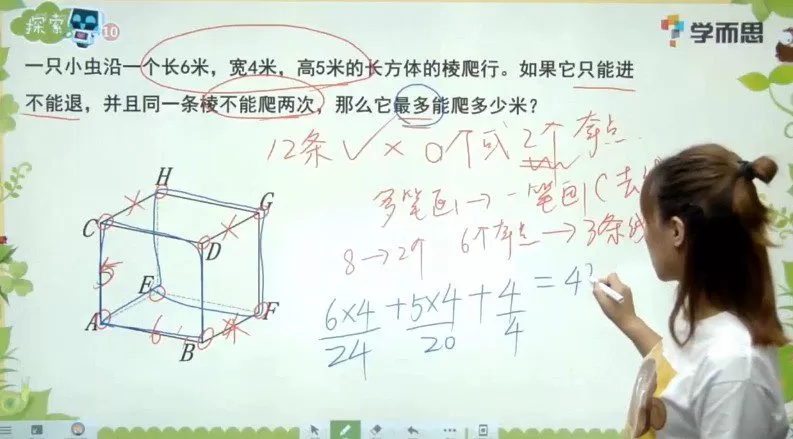 探索
10
学而思
一只小虫沿一个长6米，宽4米，高5米的长方体的棱爬行。如果它只能进
不能退，并且同一条棱不能爬两次，那么它最多能爬多少米？
12条 ✓ × 0个或2个奇点
多笔画→一笔画(去
8→2个 6个奇点→3条线
6×4/24 + 5×4/20 + 4/4 = 4
H
G
C
D
5
E
A
6
B
4
F